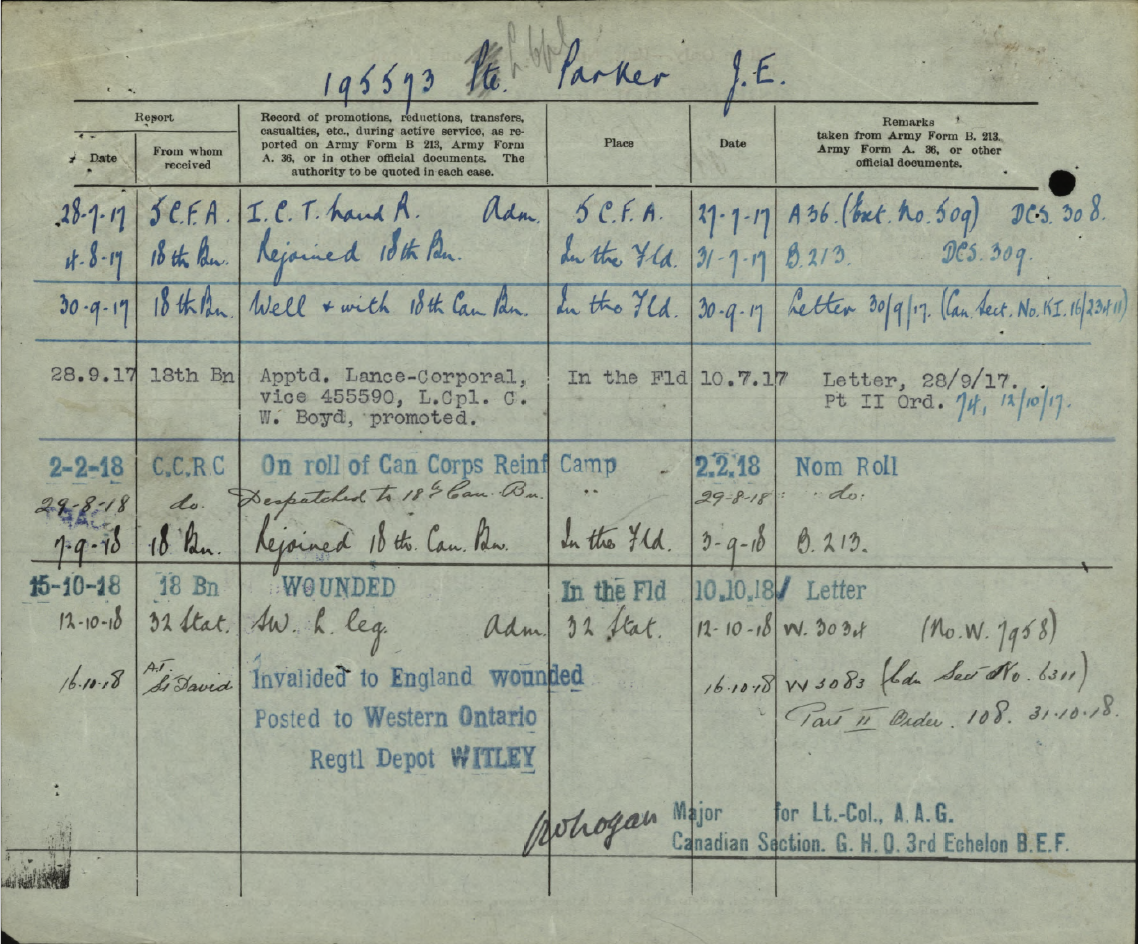 195573 Pte. L. Cpl Parker J.E.
Report
Date
From whom received
Record of promotions, reductions, transfers, casualties, etc., during active service, as reported on Army Form B 213, Army Form A. 36, or in other official documents. The authority to be quoted in each case.
Place
Date
Remarks
taken from Army Form B. 213, Army Form A. 36, or other official documents.
28-7-17 5 C.F.A. I.C.T. hand R. Adm. 5 C.F.A. 27-7-17 A 36. (Ext. No. 509) DCS. 308.
4-8-17 18th Bn. Rejoined 18th Bn. In the Fld. 31-7-17 B.213. DCS. 309.
30-9-17 18th Bn. Well & with 18th Can Bn. In the Fld. 30-9-17 Letter 30/9/17. (Can. Sect. No. KI. 16/23411)
28.9.17 18th Bn Apptd. Lance-Corporal, In the Fld 10.7.17 Letter, 28/9/17.
vice 455590, L.Cpl. C. Pt II Ord. 74, 12/10/17.
W. Boyd, promoted.
2-2-18 C.C.R.C On roll of Can Corps Reinf Camp 2.2.18 Nom Roll
29-8-18 do. Despatched to 18th Can. Bn. " 29-8-18 do.
7-9-18 18 Bn. Rejoined 18th. Can. Bn. In the Fld. 3-9-18 B.213.
15-10-18 18 Bn WOUNDED In the Fld 10.10.18 Letter
12-10-18 32 Stat. SW. L. leg. Adm. 32 Stat. 12-10-18 W. 3034 (No. W. 7958)
16.10.18 A.T. St David Invalided to England wounded 16.10.18 W 3083 (Cdn Sect No. 6311)
Posted to Western Ontario Part II Order. 108. 31-10-18.
Regtl Depot WITLEY
Major for Lt.-Col., A.A.G.
Canadian Section. G. H. Q. 3rd Echelon B.E.F.